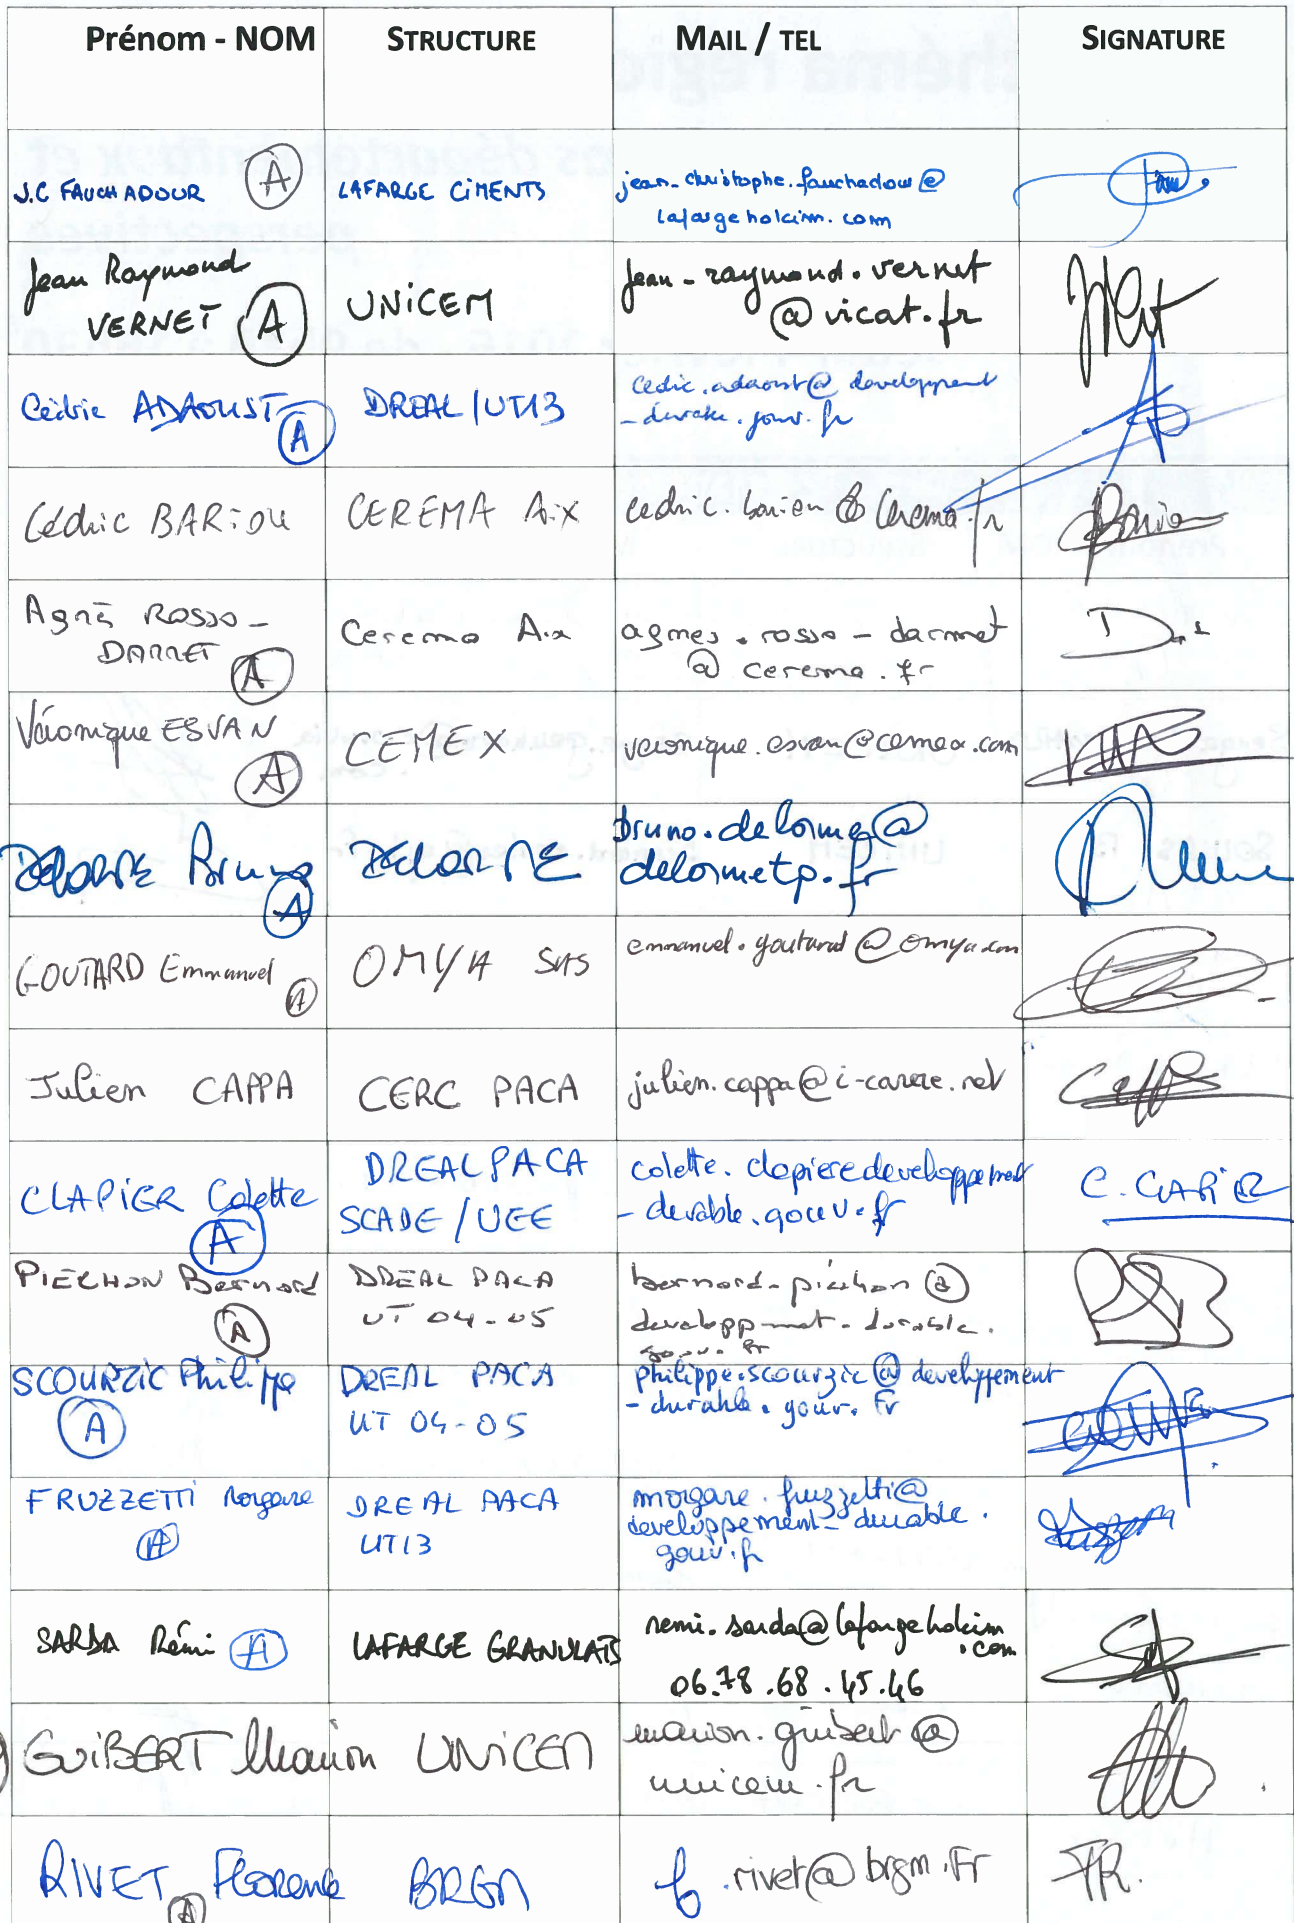 Prénom - NOM STRUCTURE MAIL / TEL SIGNATURE
J.C FAUCHADOUR A LAFARGE CIMENTS jean-christophe.fauchadour@
lafargeholcim.com
Jean Raymond jean-raymond.vernet
VERNET A UNICEM @vicat.fr
Cédric ADAOUST A DREAL/UT13 cedric.adaoust@developpement
-durable.gouv.fr
Cédric BARiou CEREMA Aix cedric.bariou@cerema.fr
Agnès ROSSO- Cerema Aix agnes.rosso-darmet
DARMET A @cerema.fr
Véronique ESVAN A CEMEX veronique.esvan@cemex.com
DELORME Bruno A DELORME bruno.delorme@
delormetp.fr
GOUTARD Emmanuel A OMYA SAS emmanuel.goutard@omya.com
Julien CAPPA CERC PACA julien.cappa@i-carere.net
CLAPIER Colette A DREAL PACA colette.clapier@developpement
SCADE/UEE -durable.gouv.fr
C. CLAPIER
PIECHON Bernard A DREAL PACA bernard.piechon@
UT 04-05 developpement-durable.
gouv.fr
SCOURZIC Philippe A DREAL PACA philippe.scourzic@developpement
UT 04-05 -durable.gouv.fr
FRUZZETTI Morgane A DREAL PACA morgane.fruzzetti@
UT13 developpement-durable.
gouv.fr
SARDA Rémi A LAFARGE GRANULATS remi.sarda@lafargeholcim
.com
06.78.68.45.46
GUIBERT Marion UNICEM marion.guibert@
unicem.fr
RIVET Florence A BRGM f.rivet@brgm.fr FR.